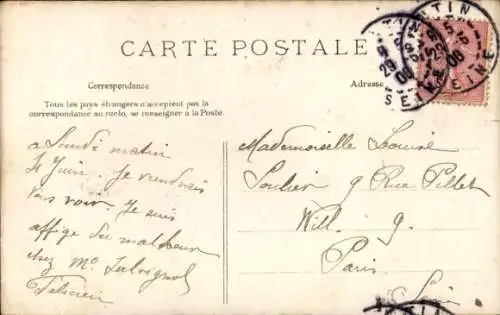 CARTE POSTALE
Correspondance
Adresse
Tous les pays étrangers n'acceptent pas la
correspondance au recto, se renseigner à la Poste.
TIN
29
06
SEINE
à Lundi matin
Juin. Je viendrai
vous voir. Je suis
affligé du malheur
chez Me
Félicien
Mademoiselle Louise
Soulier 9 Rue Pillet
Will. 9.
Paris